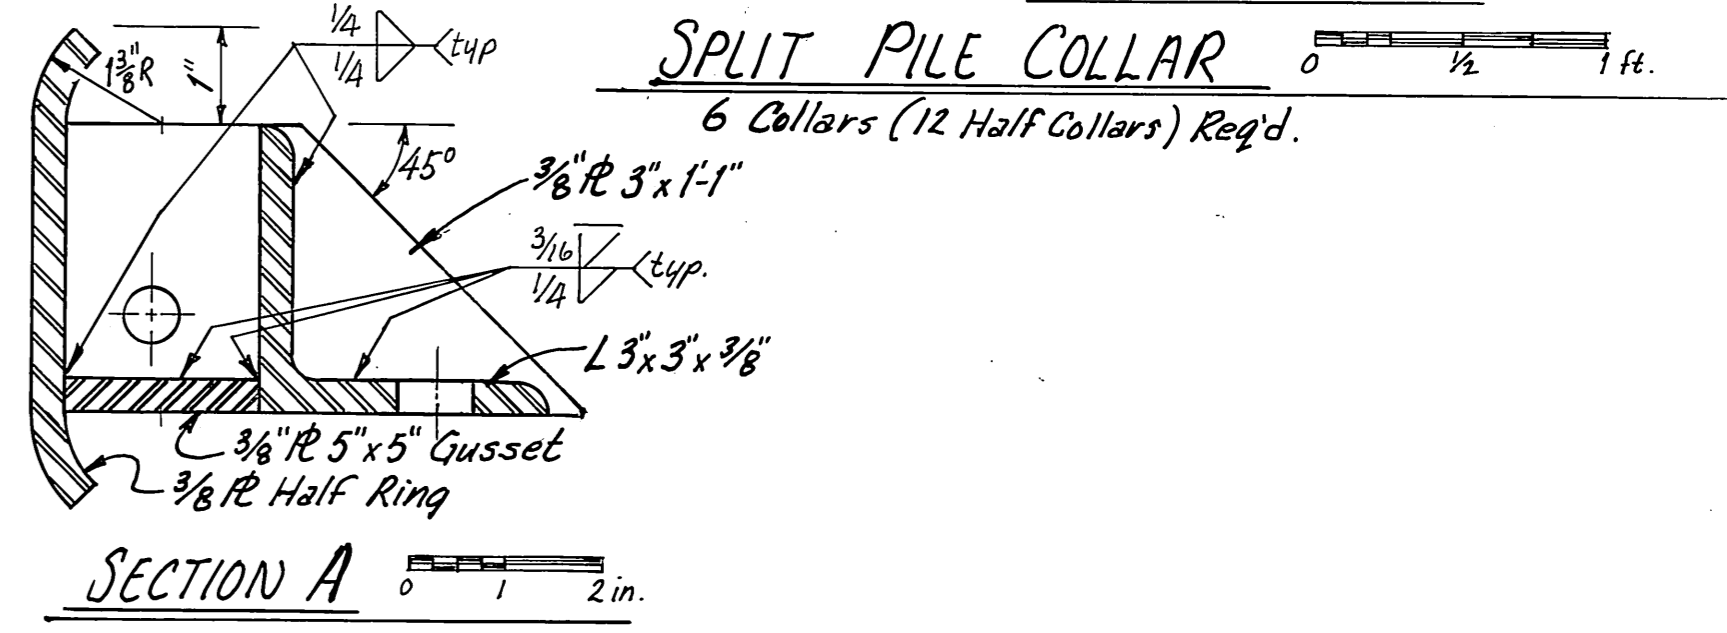 1/4
1/4
(typ
1 3/8" R
1"
SPLIT PILE COLLAR
0 1/2 1 ft.
6 Collars (12 Half Collars) Req'd.
45°
3/8" PL 3" x 1'-1"
3/16
1/4
(typ.
L 3" x 3" x 3/8"
3/8" PL 5" x 5" Gusset
3/8 PL Half Ring
SECTION A
0 1 2 in.